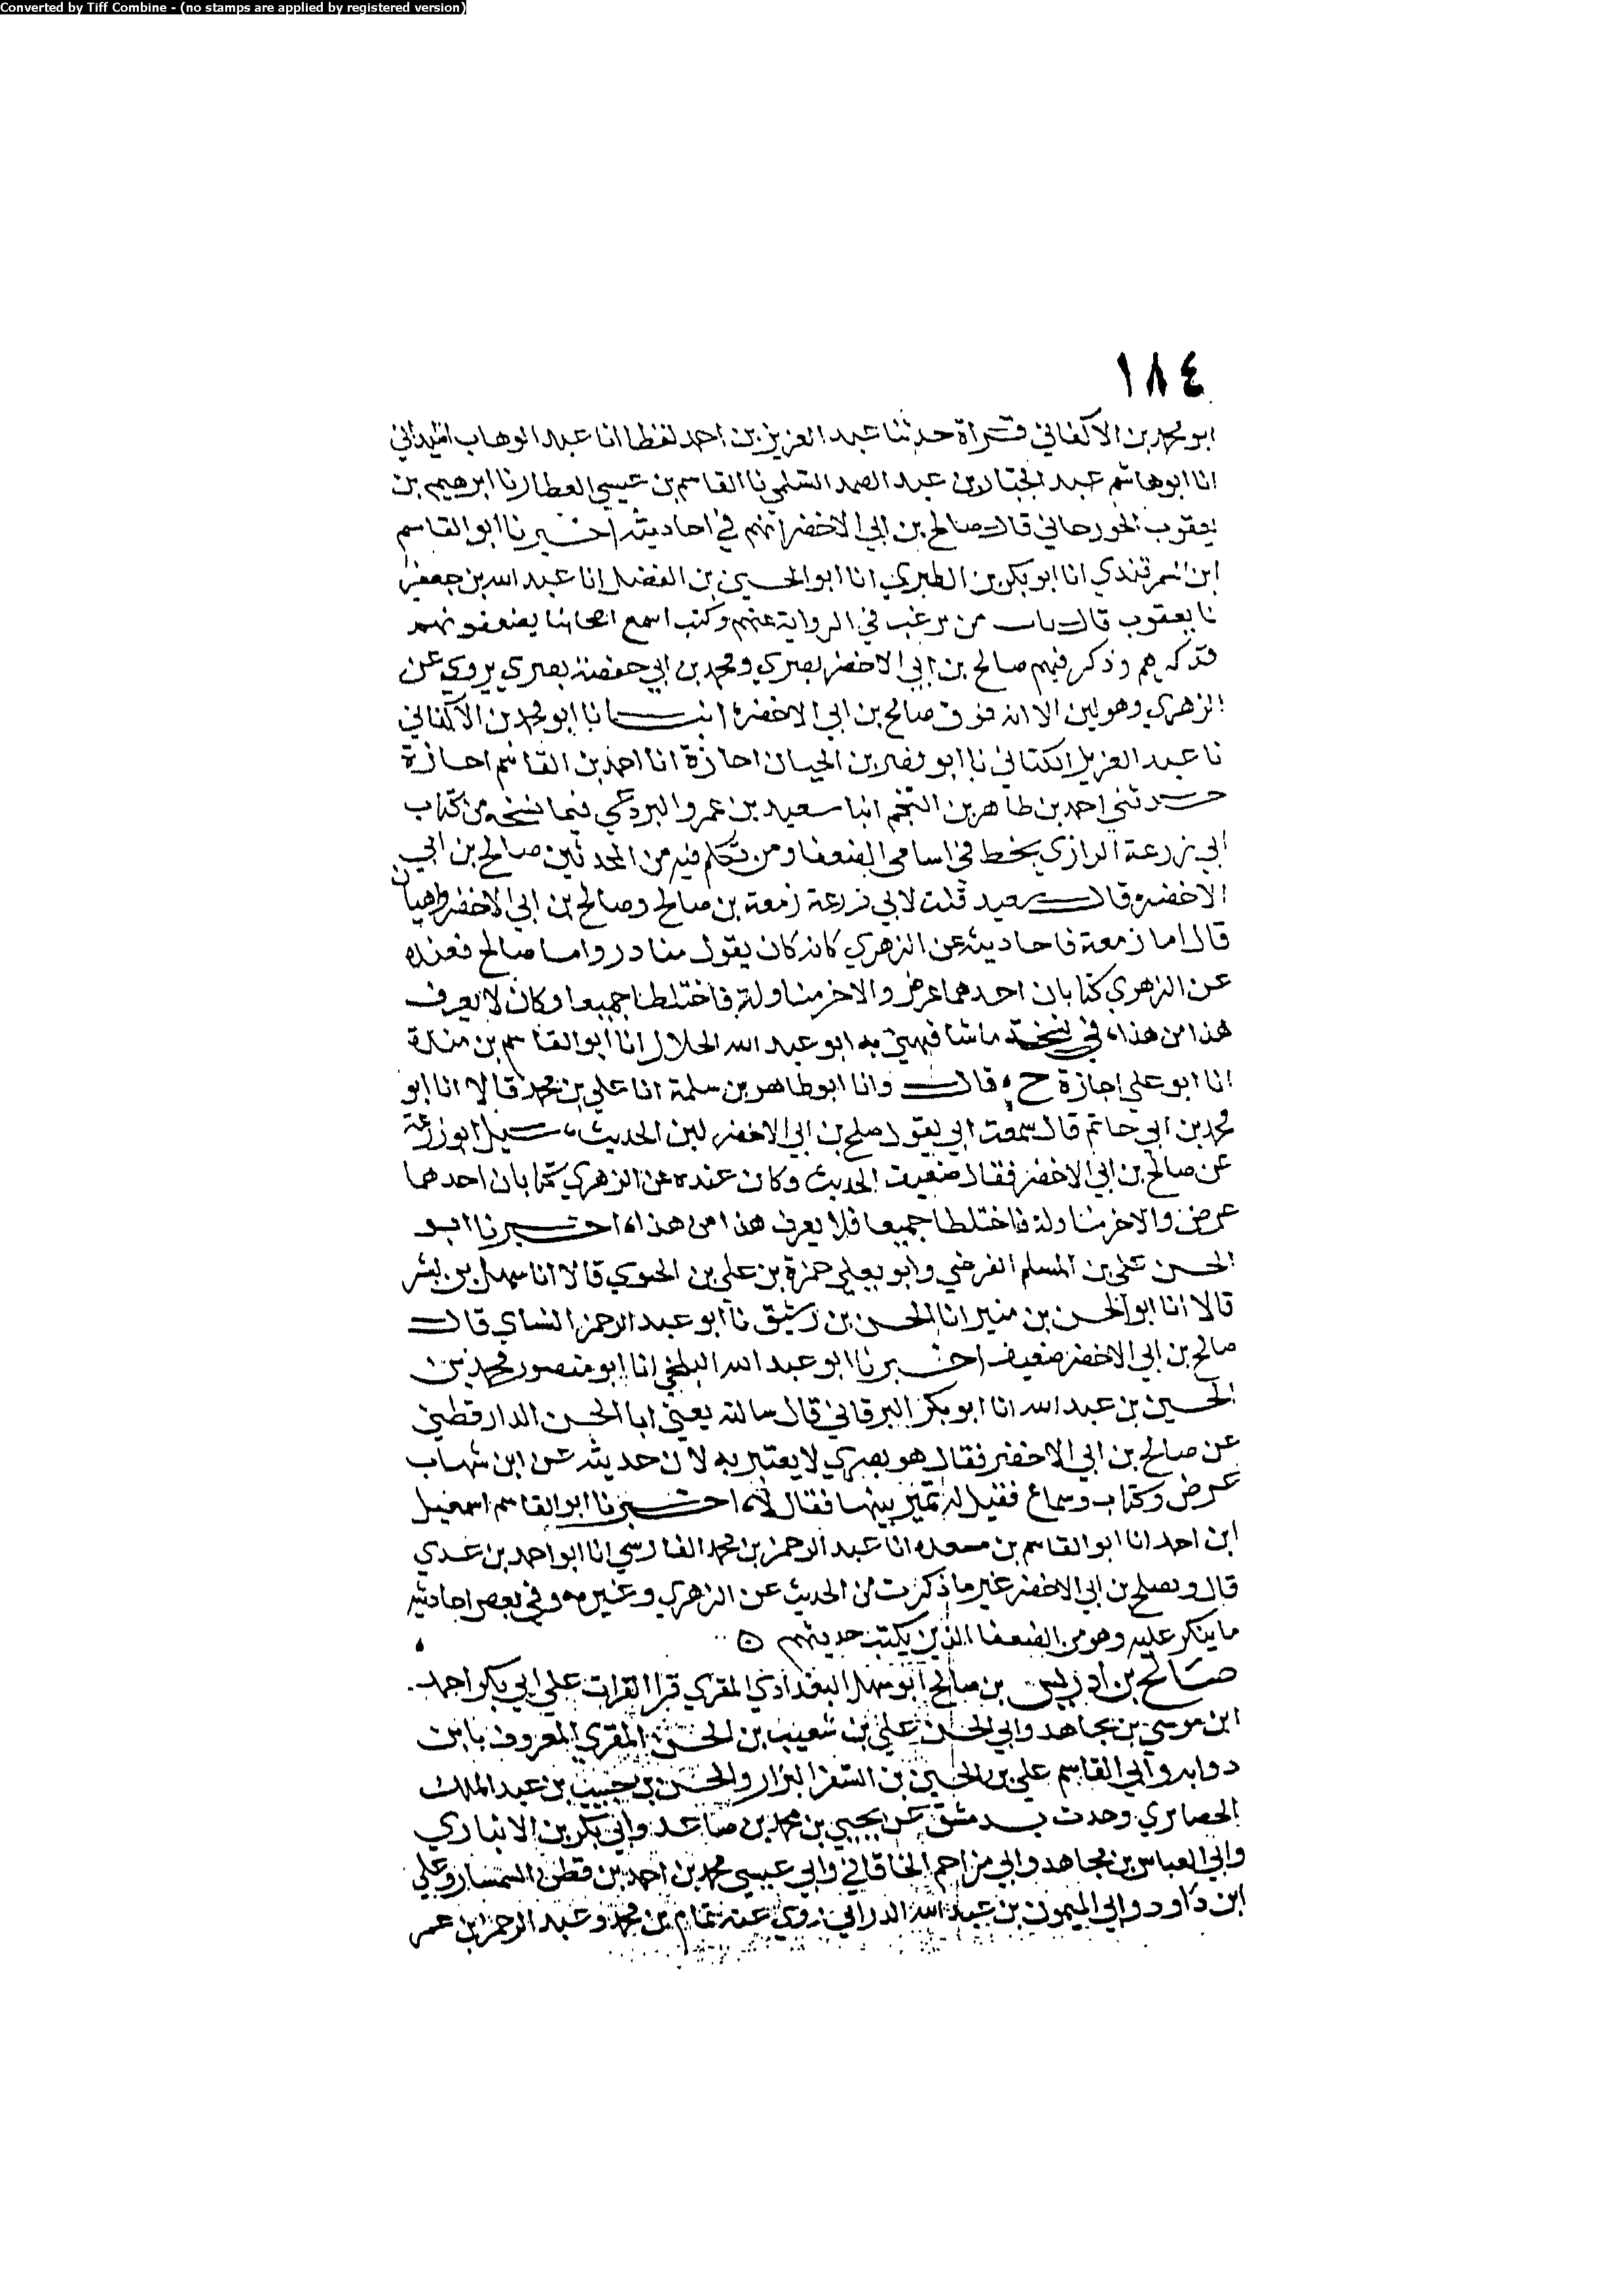 Converted by Tiff Combine - (no stamps are applied by registered version)
١٨٤
ابو محمد بن الاكفاني قراة حدثنا عبد العزيز بن احمد لفظا انا عبد الوهاب الميداني
انا ابو هاشم عبد الجبار بن عبد الصمد السلمي نا القاسم بن عيسي العطار نا ابرهيم بن
يعقوب الجورجاني قال صالح بن ابي الاخضر اتهم في احاديثه اخبرنا ابو القاسم
ابن السمرقندي انا ابو بكر بن الطبري انا ابو الحسين بن الفضل انا عبد الله بن جعفر
نا يعقوب قال باب من يرغب في الرواية عنهم وكنت اسمع اصحابنا يضعفونهم
فذكرهم وذكر فيهم صالح بن ابي الاخضر بصري ومحمد بن ابي حفصة بصري يروي عن
الزهري وهو لين الا انه فوق صالح بن ابي الاخضر انبانا ابو محمد بن الاكفاني
نا عبد العزيز الكتاني نا ابو نصر بن الجبان اجازة انا احمد بن القاسم اجازة
حدثني احمد بن طاهر بن النجم انبا سعيد بن عمرو البردعي فيما نسخه من كتاب
ابي زرعة الرازي بخطه في اسامي الضعفا ومن تكلم فيه من المحدثين صالح بن ابي
الاخضر وقال سعيد قلت لابي زرعة زمعة بن صالح وصالح بن ابي الاخضر واهيان
قال اما زمعة فاحاديثه عن الزهري كانه كان يقول منادر واما صالح فعنده
عن الزهري كتابان احدهما عرض والاخر مناولة فاختلطا جميعا وكان لا يعرف
هذا من هذا، في نسخة ما شافهني به ابو عبد الله الخلال انا ابو القاسم بن مندة
انا ابو علي اجازة ح، قال وانا ابو طاهر بن سلمة انا علي بن محمد قالا انا ابو
محمد بن ابي حاتم قال سمعت ابي يقول صلح بن ابي الاخضر لين الحديث، سيل ابو زرعة
عن صالح بن ابي الاخضر فقال ضعيف الحديث وكان عنده عن الزهري كتابان احدهما
عرض والاخر مناولة فاختلطا جميعا فلا يعرف هذا من هذا، اخبرنا ابو
الحسن علي بن المسلم الفرضي وابو يعلي حمزة بن علي بن الحبوي قالا انا سهل بن بشر
قالا انا ابو الحسن بن منير انا الحسن بن رشيق نا ابو عبد الرحمن النساي قال
صالح بن ابي الاخضر ضعيف اخبرنا ابو عبد الله البلخي انا ابو منصور محمد بن
الحسين بن عبد الله انا ابو بكر البرقاني قال سالته يعني ابا الحسن الدارقطني
عن صالح بن ابي الاخضر فقال هو بصري لا يعتبر به لان حديثه عن ابن شهاب
عرض وكتاب وسماع فقيل له تميز بينها فقال لا، اخبرنا ابو القاسم اسمعيل
ابن احمد انا ابو القاسم بن مسعده انا عبد الرحمن بن محمد الفارسي انا ابو احمد بن عدي
قال ولصلح بن ابي الاخضر غير ما ذكرت من الحديث عن الزهري وغيره وفي بعض احاديثه
ما ينكر عليه وهو من الضعفا الذين يكتب حديثهم ⊙
صالح بن ادريس بن صالح ابو سهل البغدادي المقري قرا القرات علي ابي بكر احمد
ابن موسي بن مجاهد وابي الحسن علي بن شعيب بن الحسن المقري المعروف بابن
دوابه وابي القاسم علي بن الحسين بن السفر البزار والحسن بن حبيب بن عبد الملك
الحصايري وحدث بدمشق عن يحيي بن محمد بن صاعد وابي بكر بن الانباري
وابي العباس بن مجاهد وابي مزاحم الخاقاني وابي عيسي محمد بن احمد بن قطن السمسار وعلي
ابن داود وابي الميمون بن عبد الله الدراني روي عنه تمام بن محمد وعبد الرحمن ابن عمر